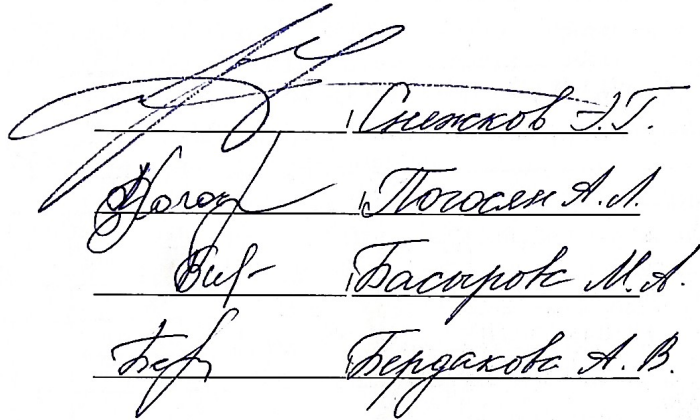 Снежков Э.Г.
Погосян А.Л.
Басырова М.А.
Бердакова А.В.